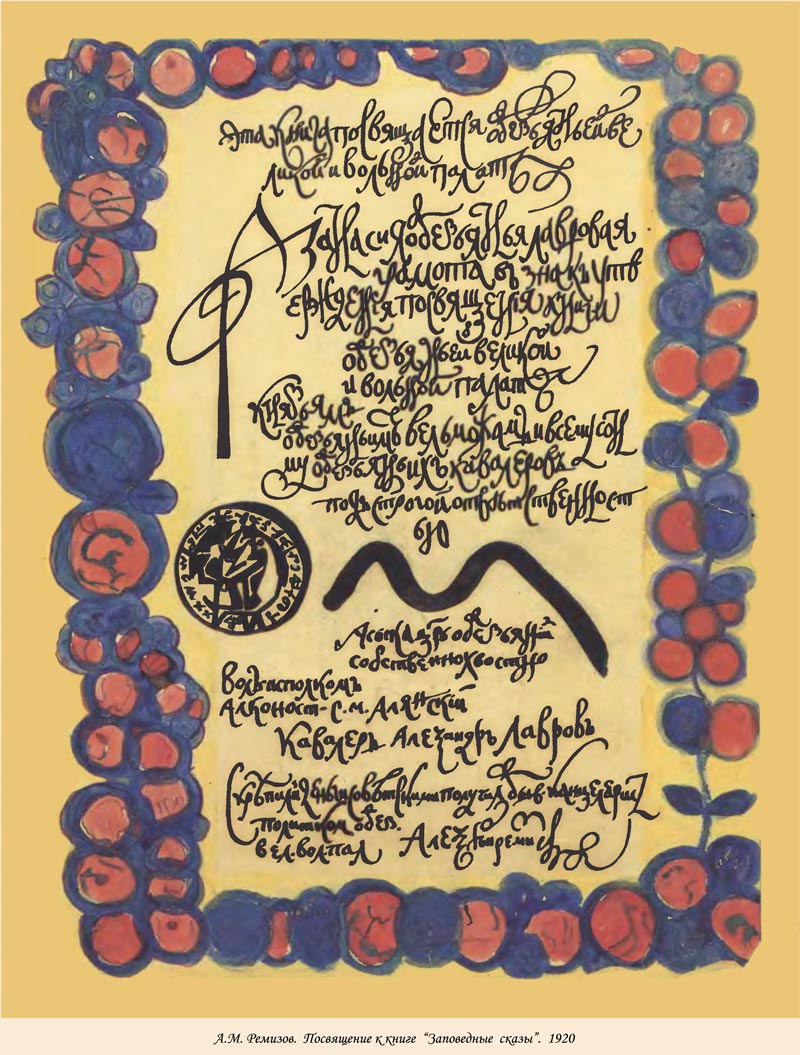 Эта книга посвящается обезьяньей ве
ликой и вольной палате
Фанасия обезьянья лавровая
грамота въ знакъ утв
ерждения посвящения книги
обезьяньей великой
и вольной палате
князьямъ
обезьянымъ вельможамъ и всему сон
му обезьяньихъ кавалеровъ
подъ строгой ответственност
ью
Асыка царь обезьянiй
собственнохвостно
Волъисполкомъ
Алконост С.М. Алянскiй
Кавалеръ Александръ Лавровъ
политком обез.
вел. вол пал Алексей Ремизов
А.М. Ремизов. Посвящение к книге “Заповедные сказы”. 1920